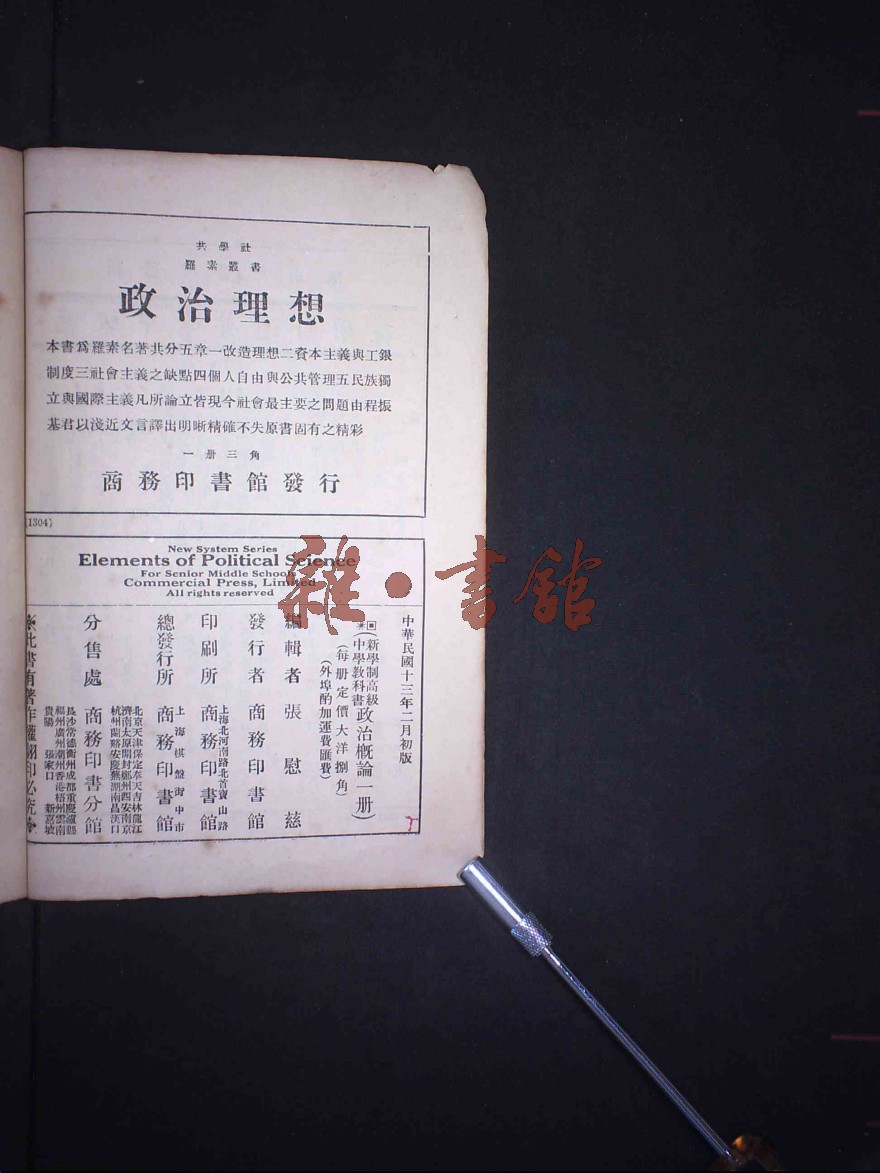 共學社
羅素叢書
政治理想
本書爲羅素名著共分五章一改造理想二資本主義與工銀
制度三社會主義之缺點四個人自由與公共管理五民族獨
立與國際主義凡所論立皆現今社會最主要之問題由程振
基君以淺近文言譯出明晰精確不失原書固有之精彩
一册三角
商務印書館發行
(1304)
New System Series
Elements of Political Science
For Senior Middle Schools
Commercial Press, Limited
All rights reserved
中華民國十三年二月初版
新學制高級
中學教科書
政治概論一册
(每册定價大洋捌角)
(外埠酌加運費匯費)
編輯者 張慰慈
發行者 商務印書館
印刷所 上海北河南路北首寶山路
商務印書館
總發行所 上海棋盤街中市
商務印書館
分售處 北京天津保定奉天吉林龍江
濟南太原開封鄭州西安南京
杭州蘭谿安慶蕪湖南昌漢口
商務印書分館
長沙常德衡州成都重慶瀘縣
福州廣州潮州香港梧州雲南
貴陽 張家口 新嘉坡
此書有著作權翻印必究
雜·書館